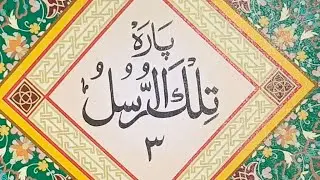 پارَہ
تِلْكَ الرُّسُلُ
٣